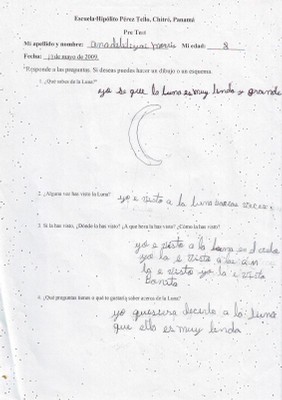 Escuela Hipólito Pérez Tello, Chitré, Panamá
Pre Test
Mi apellido y nombre: Mi edad: 8
Fecha: de mayo de 2009.
Responde a las preguntas. Si deseas puedes hacer un dibujo o un esquema.
1. ¿Qué sabes de la Luna?
yo se que la luna es muy linda y grande
2. ¿Alguna vez has visto la Luna?
yo e visto a la luna veces
3. Si la has visto, ¿Dónde la has visto? ¿A qué hora la has visto? ¿Cómo la has visto?
yo e visto a la luna en el cielo
yo la e visto a las
la e visto yo la e visto
bonita
4. ¿Qué preguntas tienes o qué te gustaría saber acerca de la Luna?
yo quisiera decirle a la luna
que ella es muy linda